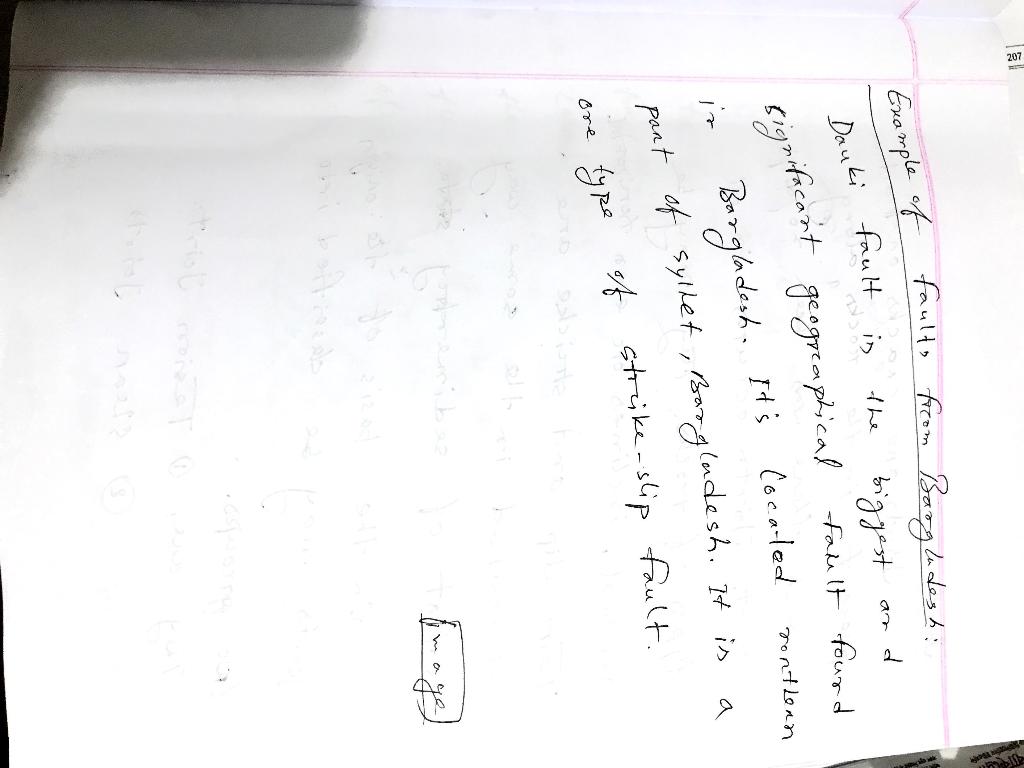 Example of faults from Bangladesh:
Dauki fault is the biggest and
signifacant geographical fault found
in Bangladesh. It's located northern
part of sylhet, Bangladesh. It is a
one type of strike-slip fault.
Image
207